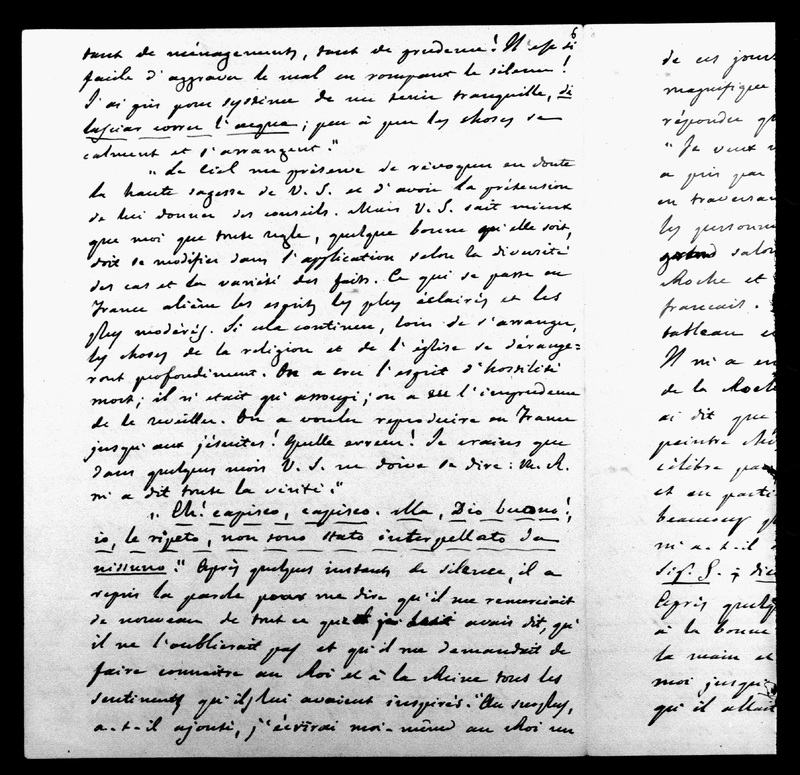 6
tant de ménagements, tant de prudence! Il est si
facile d'aggraver le mal en rompant le silence!
J'ai pris pour système de me tenir tranquille, di
lasciar correr l'acqua; peu à peu les choses se
calment et s'arrangent."
"Le Ciel me préserve de révoquer en doute
la haute sagesse de V. S. et d'avoir la prétension
de lui donner des conseils. Mais V. S. sait mieux
que moi que toute règle, quelque bonne qu'elle soit,
doit se modifier dans l'application selon la diversité
des cas et la variété des faits. Ce qui se passe en
France aliène les esprits les plus éclairés et les
plus modérés. Si cela continue, loin de s'arranger,
les choses de la religion et de l'église se dérange=
ront profondément. On a cru l'esprit d'hostilité
mort; il n'était qu'assoupi; on a eu l'imprudence
de le réveiller. On a voulu reproduire en France
jusqu'aux jésuites! Quelle erreur! Je crains que
dans quelques mois V. S. ne doive se dire: M. R.
m'a dit toute la vérité."
"Eh! capisco, capisco. Ma, Dio buono!,
io, le ripeto, non sono stato interpellato da
nissuno." Après quelques instants de silence, il a
repris la parole pour me dire qu'il me remerciait
de nouveau de tout ce que je avais dit, qu'
il ne l'oublierait pas et qu'il me demandait de
faire connaître au Roi et à la Reine tous les
sentiments qu'ils lui avaient inspirés. "Au surplus,
a-t-il ajouté, j'écrirai moi-même au Roi un
de ces jours
magnifique
répondre
"Je veux
a pris par
en traversant
les personnes
salon
Roche et
français.
tableau
Il m'a
de la Roche
ai dit que
peintre
célèbre
et en
beaucoup
m'a-t-il
Après
à la bonne
la main et
moi
qu'il allait